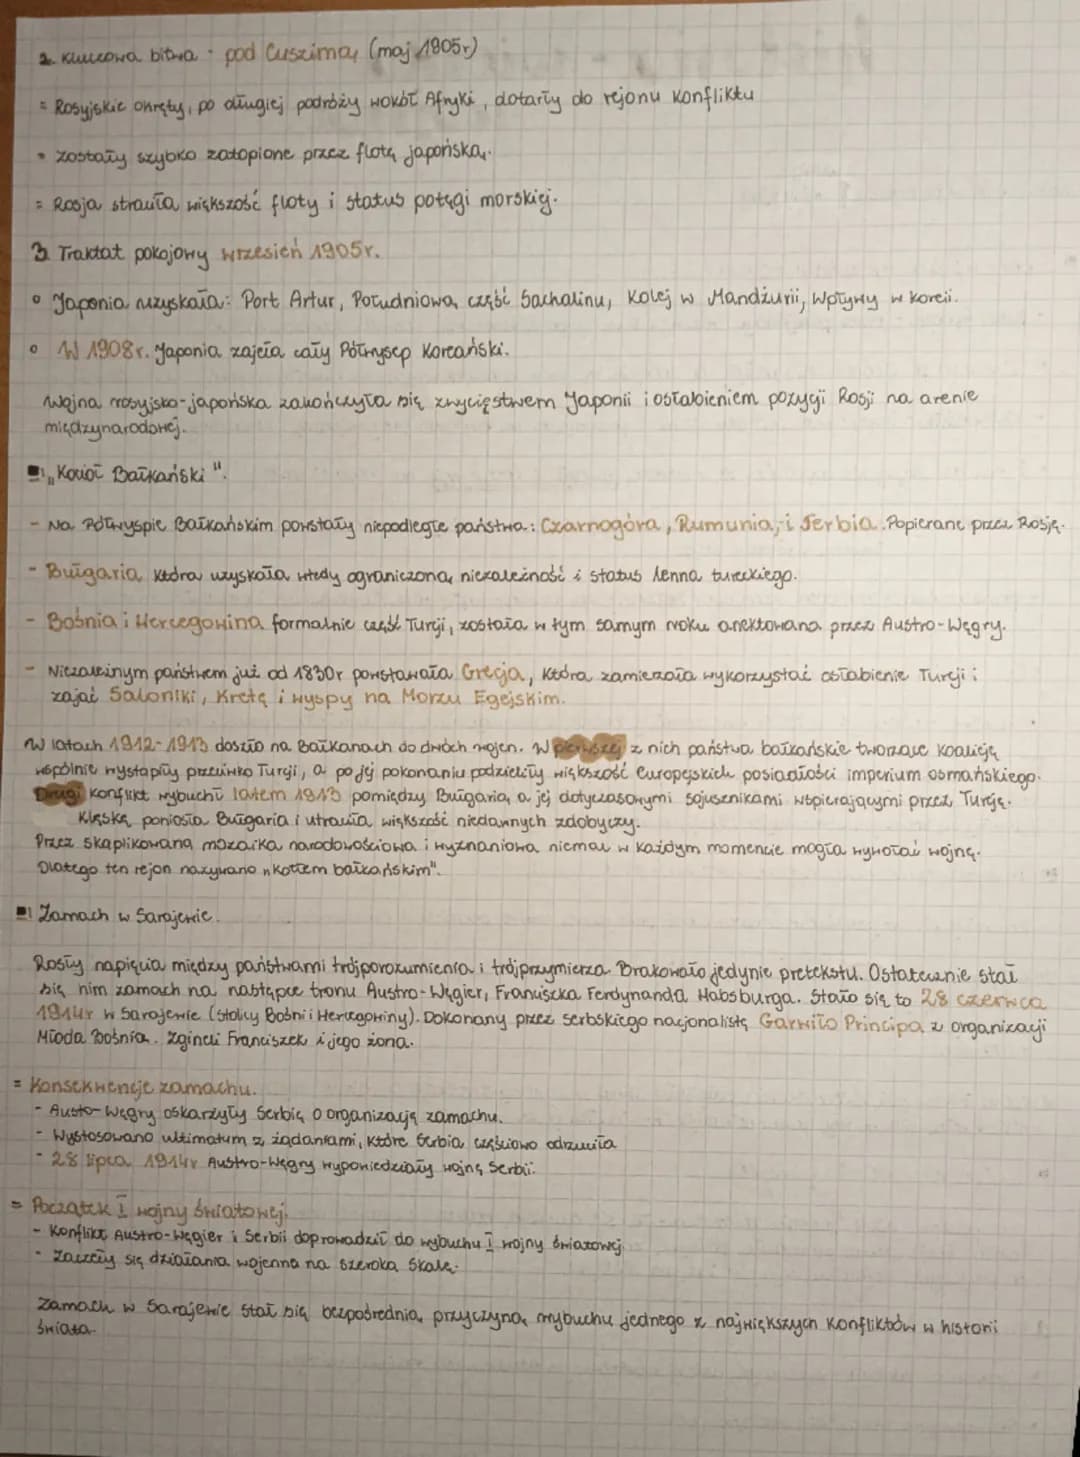 2. Kluczowa bitwa : pod Cuszimą (maj 1905r)
= Rosyjskie okręty, po długiej podróży wokół Afryki, dotarły do rejonu konfliktu
• zostały szybko zatopione przez flotę japońską.
= Rosja straciła większość floty i status potęgi morskiej.
3. Traktat pokojowy wrzesień 1905r.
° Japonia uzyskała: Port Artur, Południową część Sachalinu, Kolej w Mandżurii, Wpływy w Korei.
° W 1908r. Japonia zajęła cały Półwysep Koreański.
Wojna rosyjsko-japońska zakończyła się zwycięstwem Japonii i osłabieniem pozycji Rosji na arenie
międzynarodowej.
„Kocioł Bałkański".
- Na Półwyspie Bałkańskim powstały niepodległe państwa: Czarnogóra, Rumunia, i Serbia. Popierane przez Rosję.
- Bułgaria, która uzyskała wtedy ograniczoną niezależność i status lenna tureckiego.
- Bośnia i Hercegowina formalnie część Turcji, została w tym samym roku anektowana przez Austro-Węgry.
- Niezależnym państwem już od 1830r powstawała Grecja, która zamierzała wykorzystać osłabienie Turcji i
zająć Saloniki, Kretę i wyspy na Morzu Egejskim.
W latach 1912-1913 doszło na Bałkanach do dwóch wojen. W pierwszej z nich państwa bałkańskie tworzące koalicję
wspólnie wystąpiły przeciwko Turcji, a po jej pokonaniu podzieliły większość europejskich posiadłości imperium osmańskiego.
Drugi konflikt wybuchł latem 1913 pomiędzy Bułgarią, a jej dotyczasowymi sojusznikami wspierającymi przez Turcję.
Klęskę poniosła Bułgaria i utraciła większość niedawnych zdobyczy.
Przez skąplikowaną mozaika narodowościowa i wyznaniowa niemal w każdym momencie mogła wywołać wojnę.
Dlatego ten rejon nazywano „kotłem bałkańskim".
Zamach w Sarajewie.
Rosły napięcia między państwami trójporozumienia i trójprzymierza. Brakowało jedynie pretekstu. Ostatecznie stał
się nim zamach na następcę tronu Austro-Węgier, Franciszka Ferdynanda Habsburga. Stało się to 28 czerwca
1914r w Sarajewie (stolicy Bośni i Hercegowiny). Dokonany przez serbskiego nacjonalistę Gawriło Principa z organizacji
Młoda Bośnia. Zginęli Franciszek i jego żona.
= Konsekwencje zamachu.
- Austo-Węgry oskarżyły Serbię o organizację zamachu.
- Wystosowano ultimatum z żądaniami, które Serbia częściowo odrzuciła
- 28 lipca 1914r Austro-Węgry wypowiedziały wojnę Serbii.
= Początek I wojny światowej.
- Konflikt Austro-Węgier i Serbii doprowadził do wybuchu I wojny światowej.
- Zaczęły się działania wojenna na szeroką skalę.
Zamach w Sarajewie stał się bezpośrednią przyczyną wybuchu jednego z największych konfliktów w historii
świata.